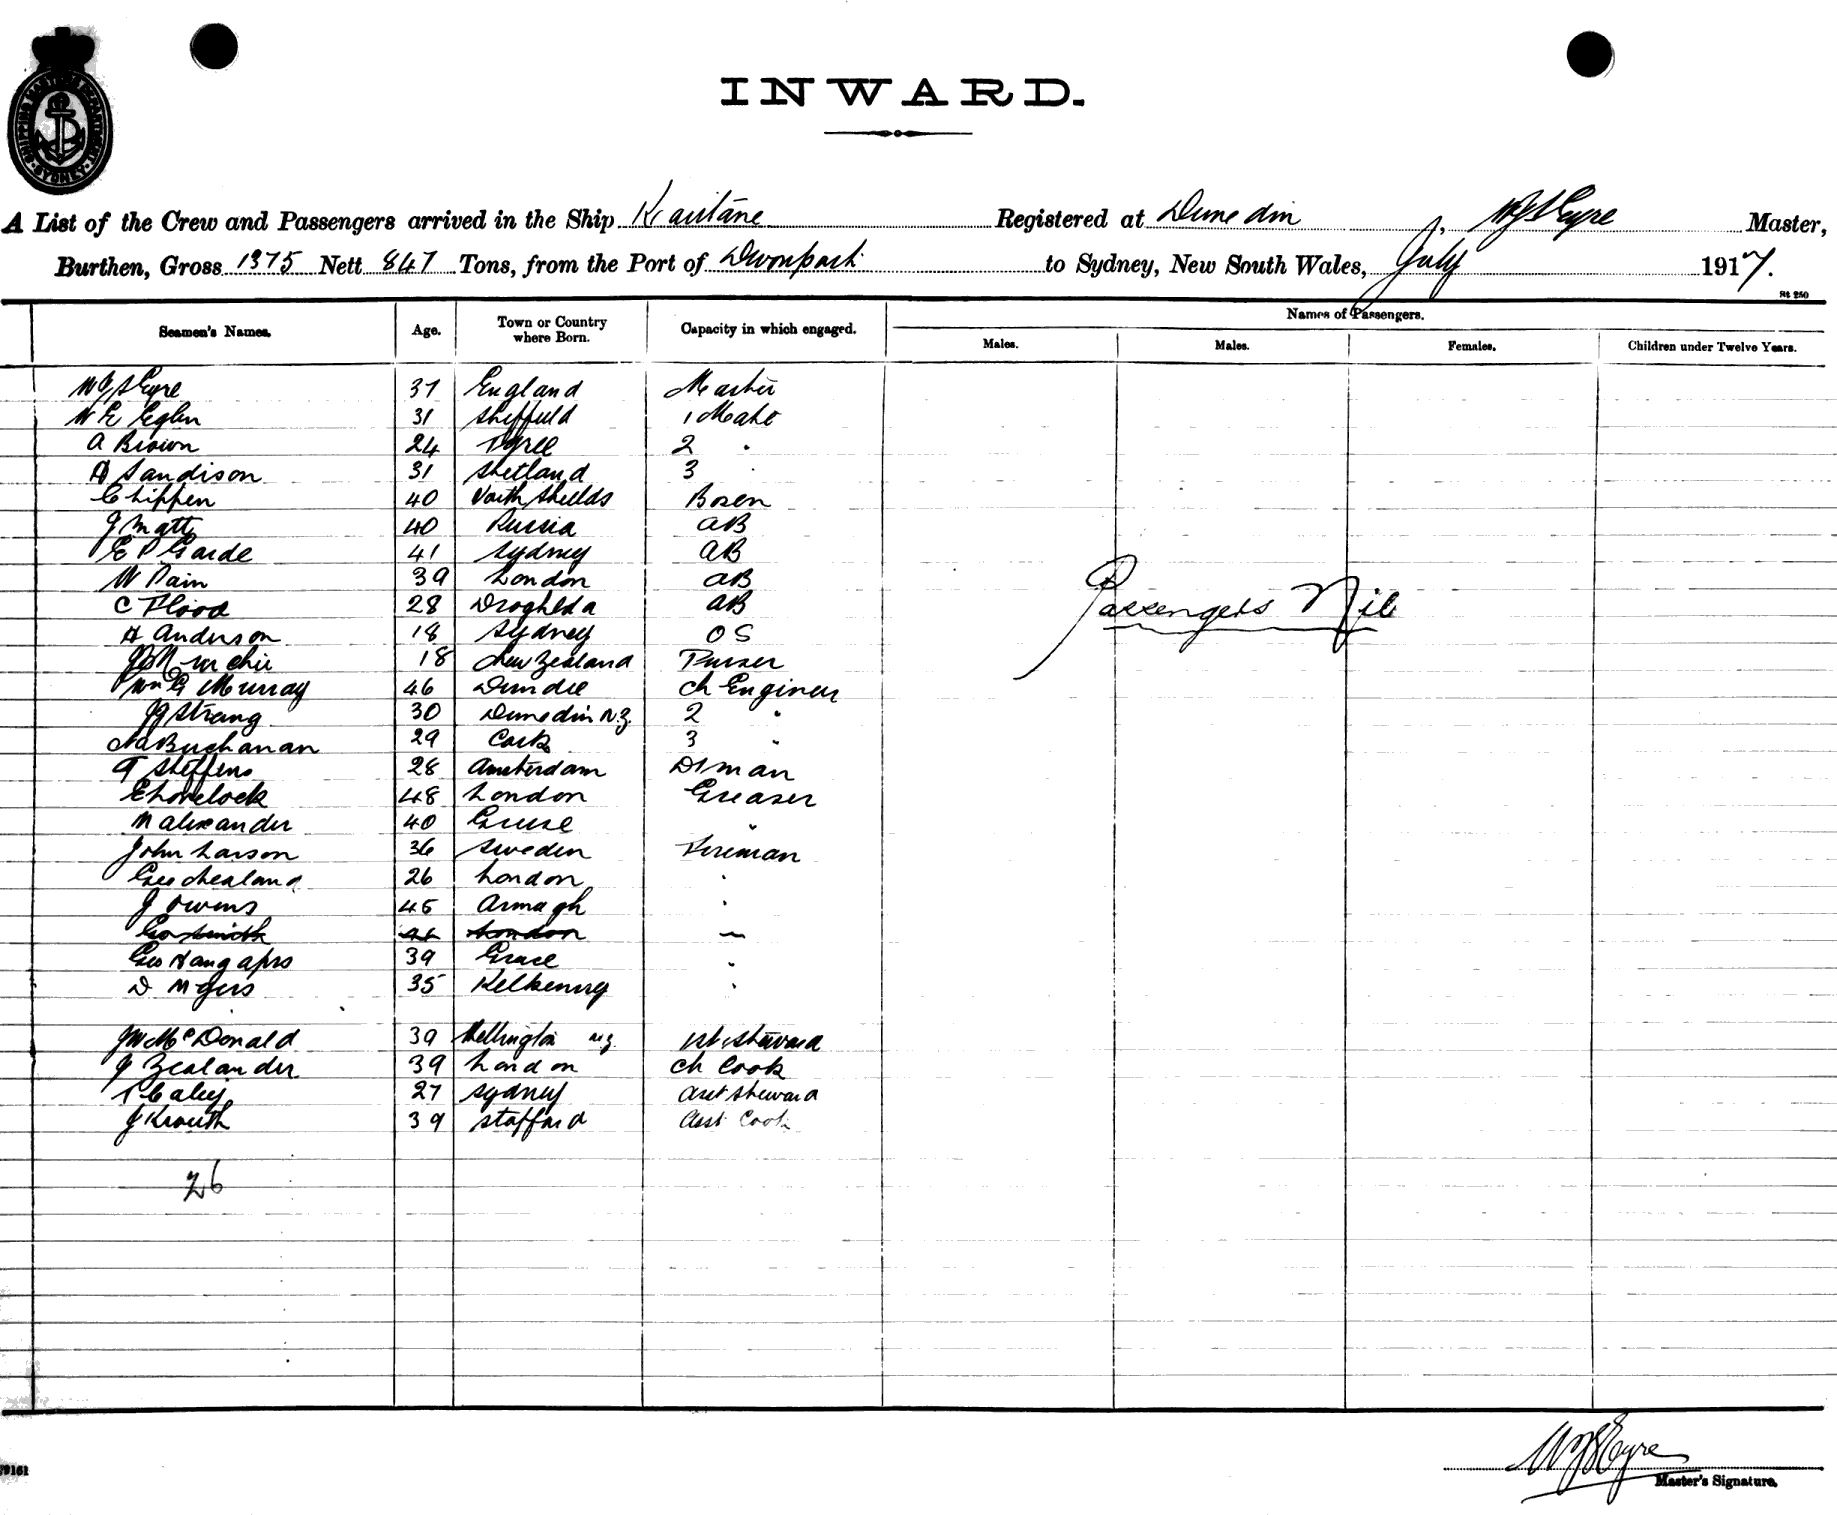 SHIPPING MASTERS DEPARTMENT SYDNEY
INWARD.
A List of the Crew and Passengers arrived in the Ship Karitane Registered at Dunedin, WJSEyre Master,
Burthen, Gross 1375 Nett 847 Tons, from the Port of Devonport to Sydney, New South Wales, July 1917.
St 250
Seamen's Names. Age. Town or Country where Born. Capacity in which engaged. Names of Passengers.
Males. Males. Females. Children under Twelve Years.
WJSEyre 37 England Master
W E Eglen 31 Sheffield 1 Mate
A Brown 24 Tyree 2 "
A Sandison 31 Shetland 3 "
C Lippen 40 North Shields Bosen
J Matt 40 Russia AB
E P Garde 41 Sydney AB
W Pain 39 London AB
C Flood 28 Drogheda AB
A Anderson 18 Sydney OS
18 New Zealand Purser
Wm G Murray 46 Dundee Ch Engineer
JJ Strang 30 Dunedin N.Z. 2 "
Buchanan 29 Cork 3 "
T Steffens 28 Amsterdam Dkman
E Lovelock 48 London Greaser
M Alexander 40 Greese "
John Larson 36 Sweden Fireman
Geo Nealand 26 London "
J Owens 45 Armagh "
Geo Smith London
Geo 39 Greece "
D Myers 35 Kelkenny "
JW McDonald 39 Wellington N.Z. 1st Steward
J Zealander 39 London Ch Cook
T Caley 27 Sydney Asst Steward
J Krouth 39 Stafford Asst Cook
Passengers Nil
26
WJSEyre
Master's Signature.